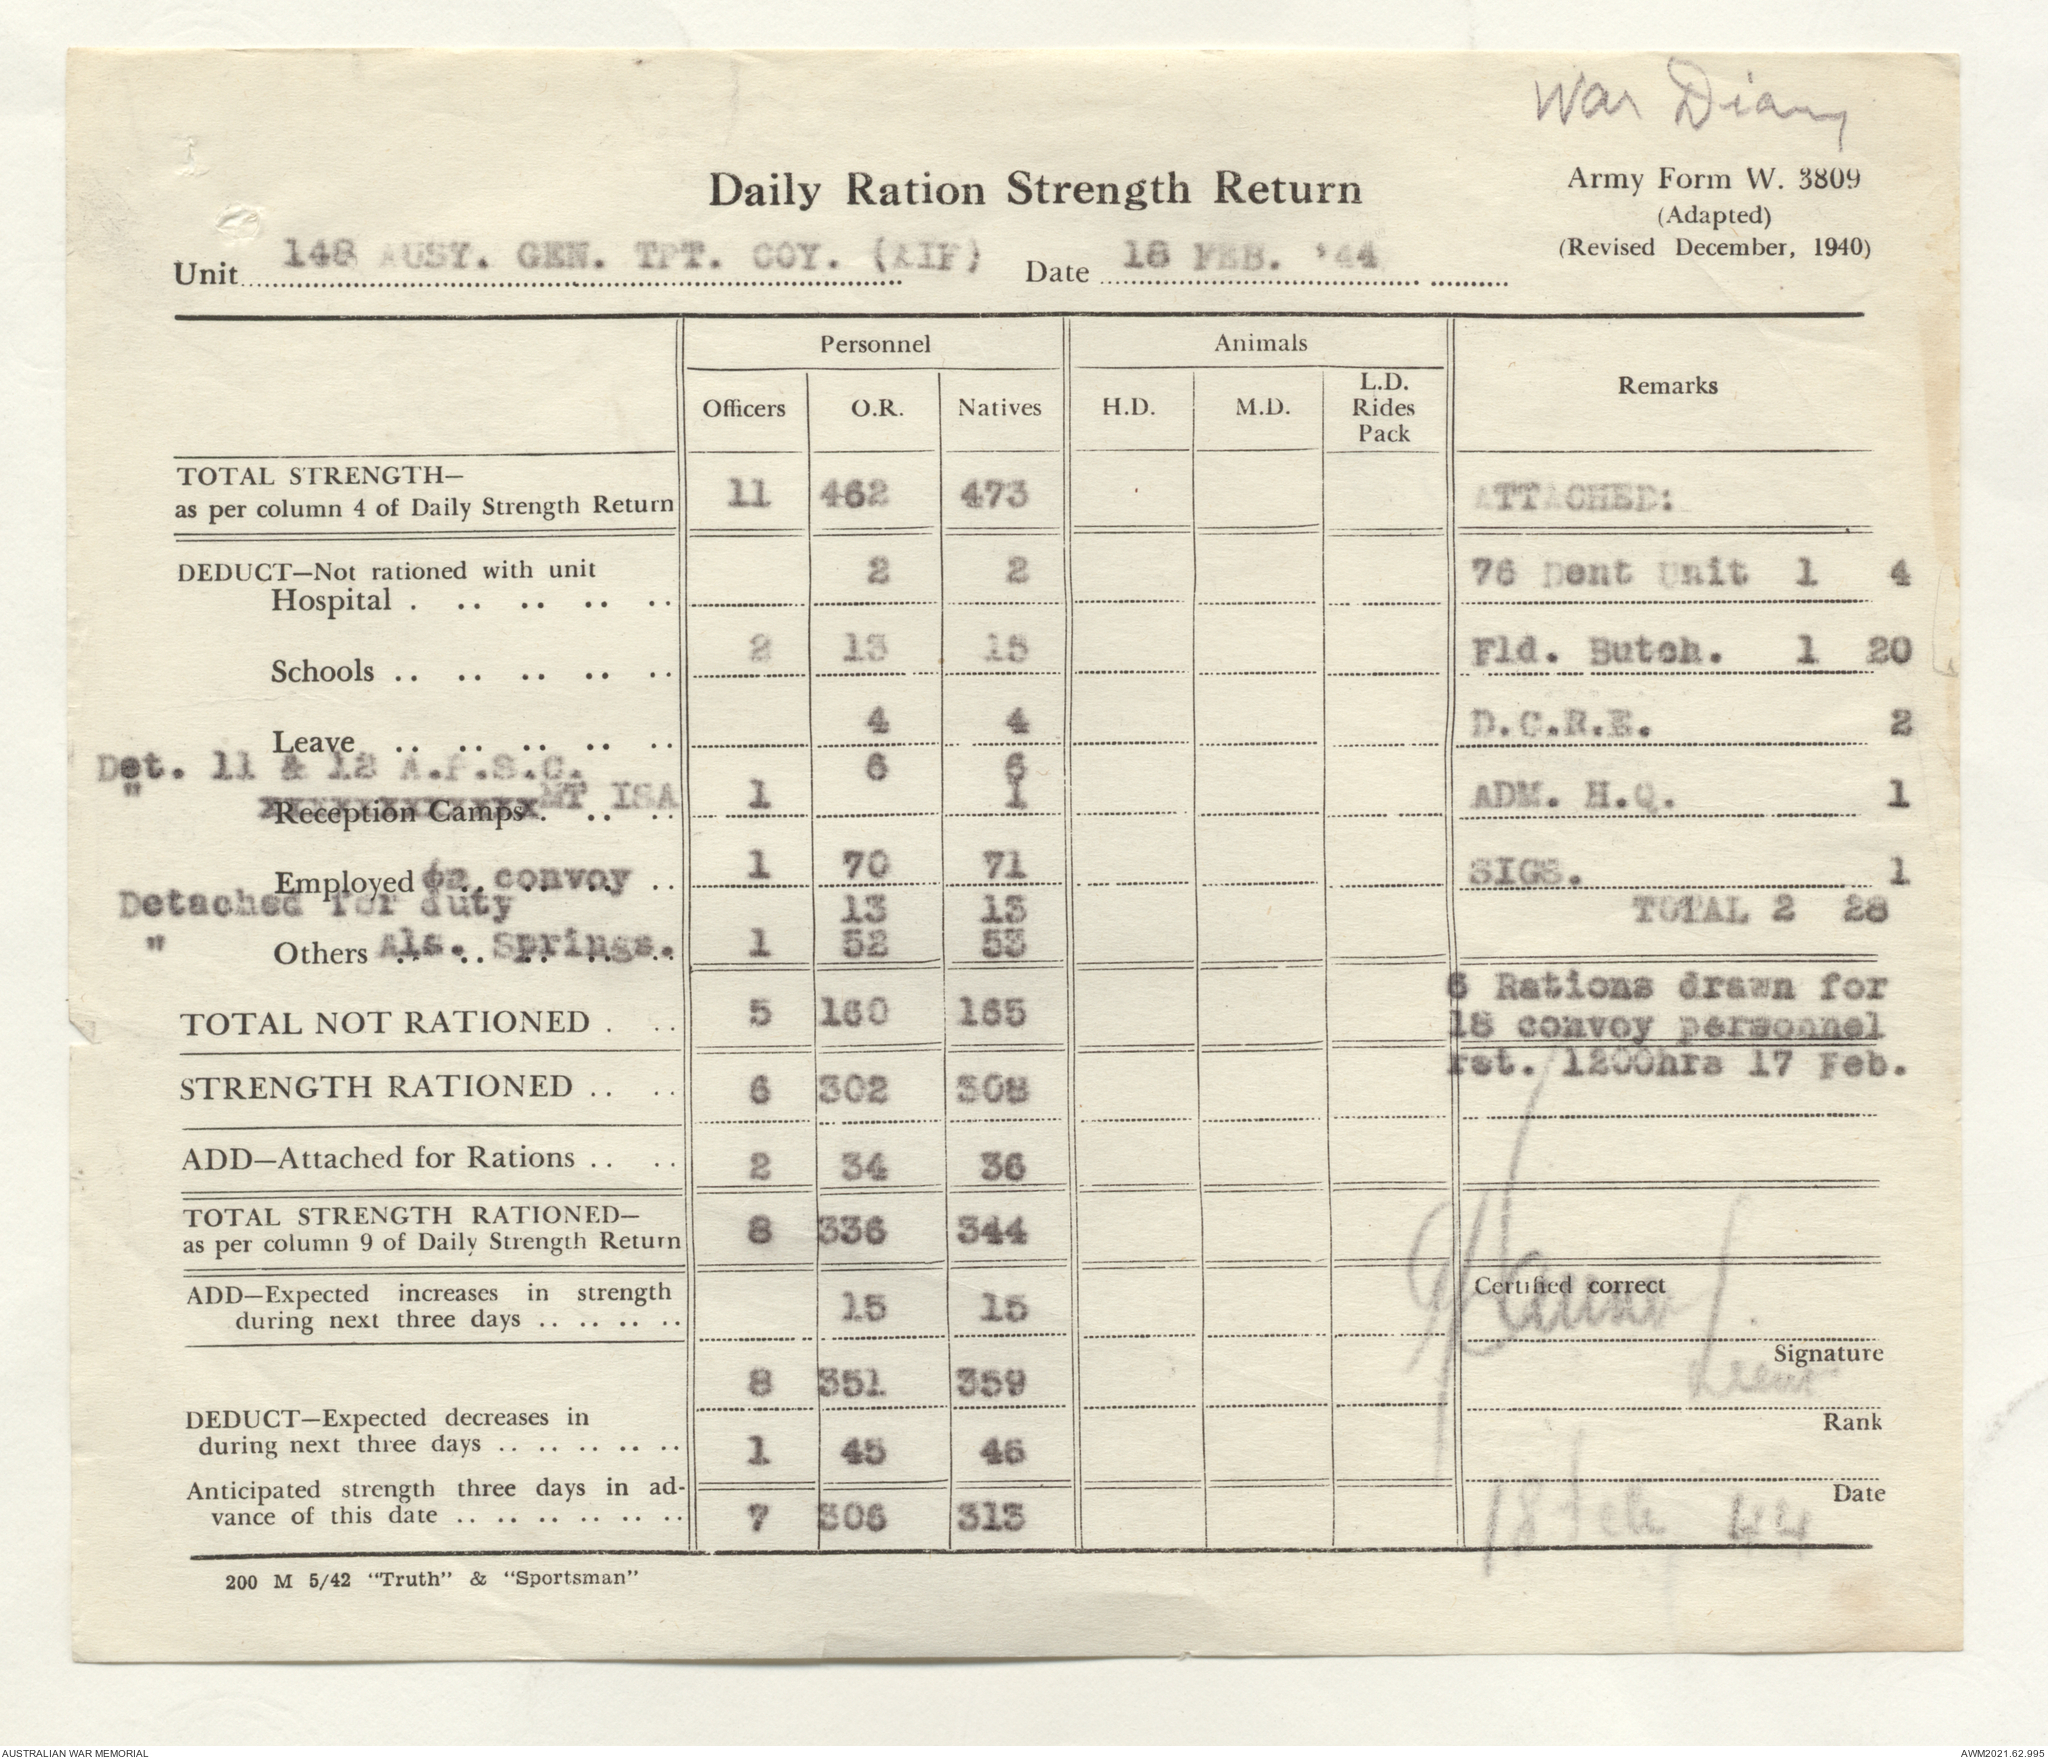 War Diary
Daily Ration Strength Return
Army Form W. 3809
(Adapted)
(Revised December, 1940)
Unit 148 AUSY. GEN. TPT. COY. (AIF) Date 18 FEB. '44
Personnel Animals Remarks
Officers O.R. Natives H.D. M.D. L.D. Rides Pack
TOTAL STRENGTH—
as per column 4 of Daily Strength Return 11 462 473 ATTACHED:
DEDUCT—Not rationed with unit
Hospital 2 2 76 Dent Unit 1 4
Schools 2 13 15 Fld. Butch. 1 20
Leave 4 4 D.C.R.E. 2
Det. 11 & 12 A.P.S.C. 6 6
" Reception Camps MT ISA 1 1 ADM. H.Q. 1
Employed on convoy 1 70 71 SIGS. 1
Detached for duty 13 13 TOTAL 2 28
" Others Als. Springs. 1 52 53
6 Rations drawn for
TOTAL NOT RATIONED 5 160 165 18 convoy personnel
ret. 1200hrs 17 Feb.
STRENGTH RATIONED 6 302 308
ADD—Attached for Rations 2 34 36
TOTAL STRENGTH RATIONED—
as per column 9 of Daily Strength Return 8 336 344
ADD—Expected increases in strength
during next three days 15 15
Certified correct
Signature
8 351 359
Lieut
Rank
DEDUCT—Expected decreases in
during next three days 1 45 46
Date
Anticipated strength three days in ad-
vance of this date 7 306 313
18 Feb 44
200 M 5/42 "Truth" & "Sportsman"
AUSTRALIAN WAR MEMORIAL AWM2021.62.995